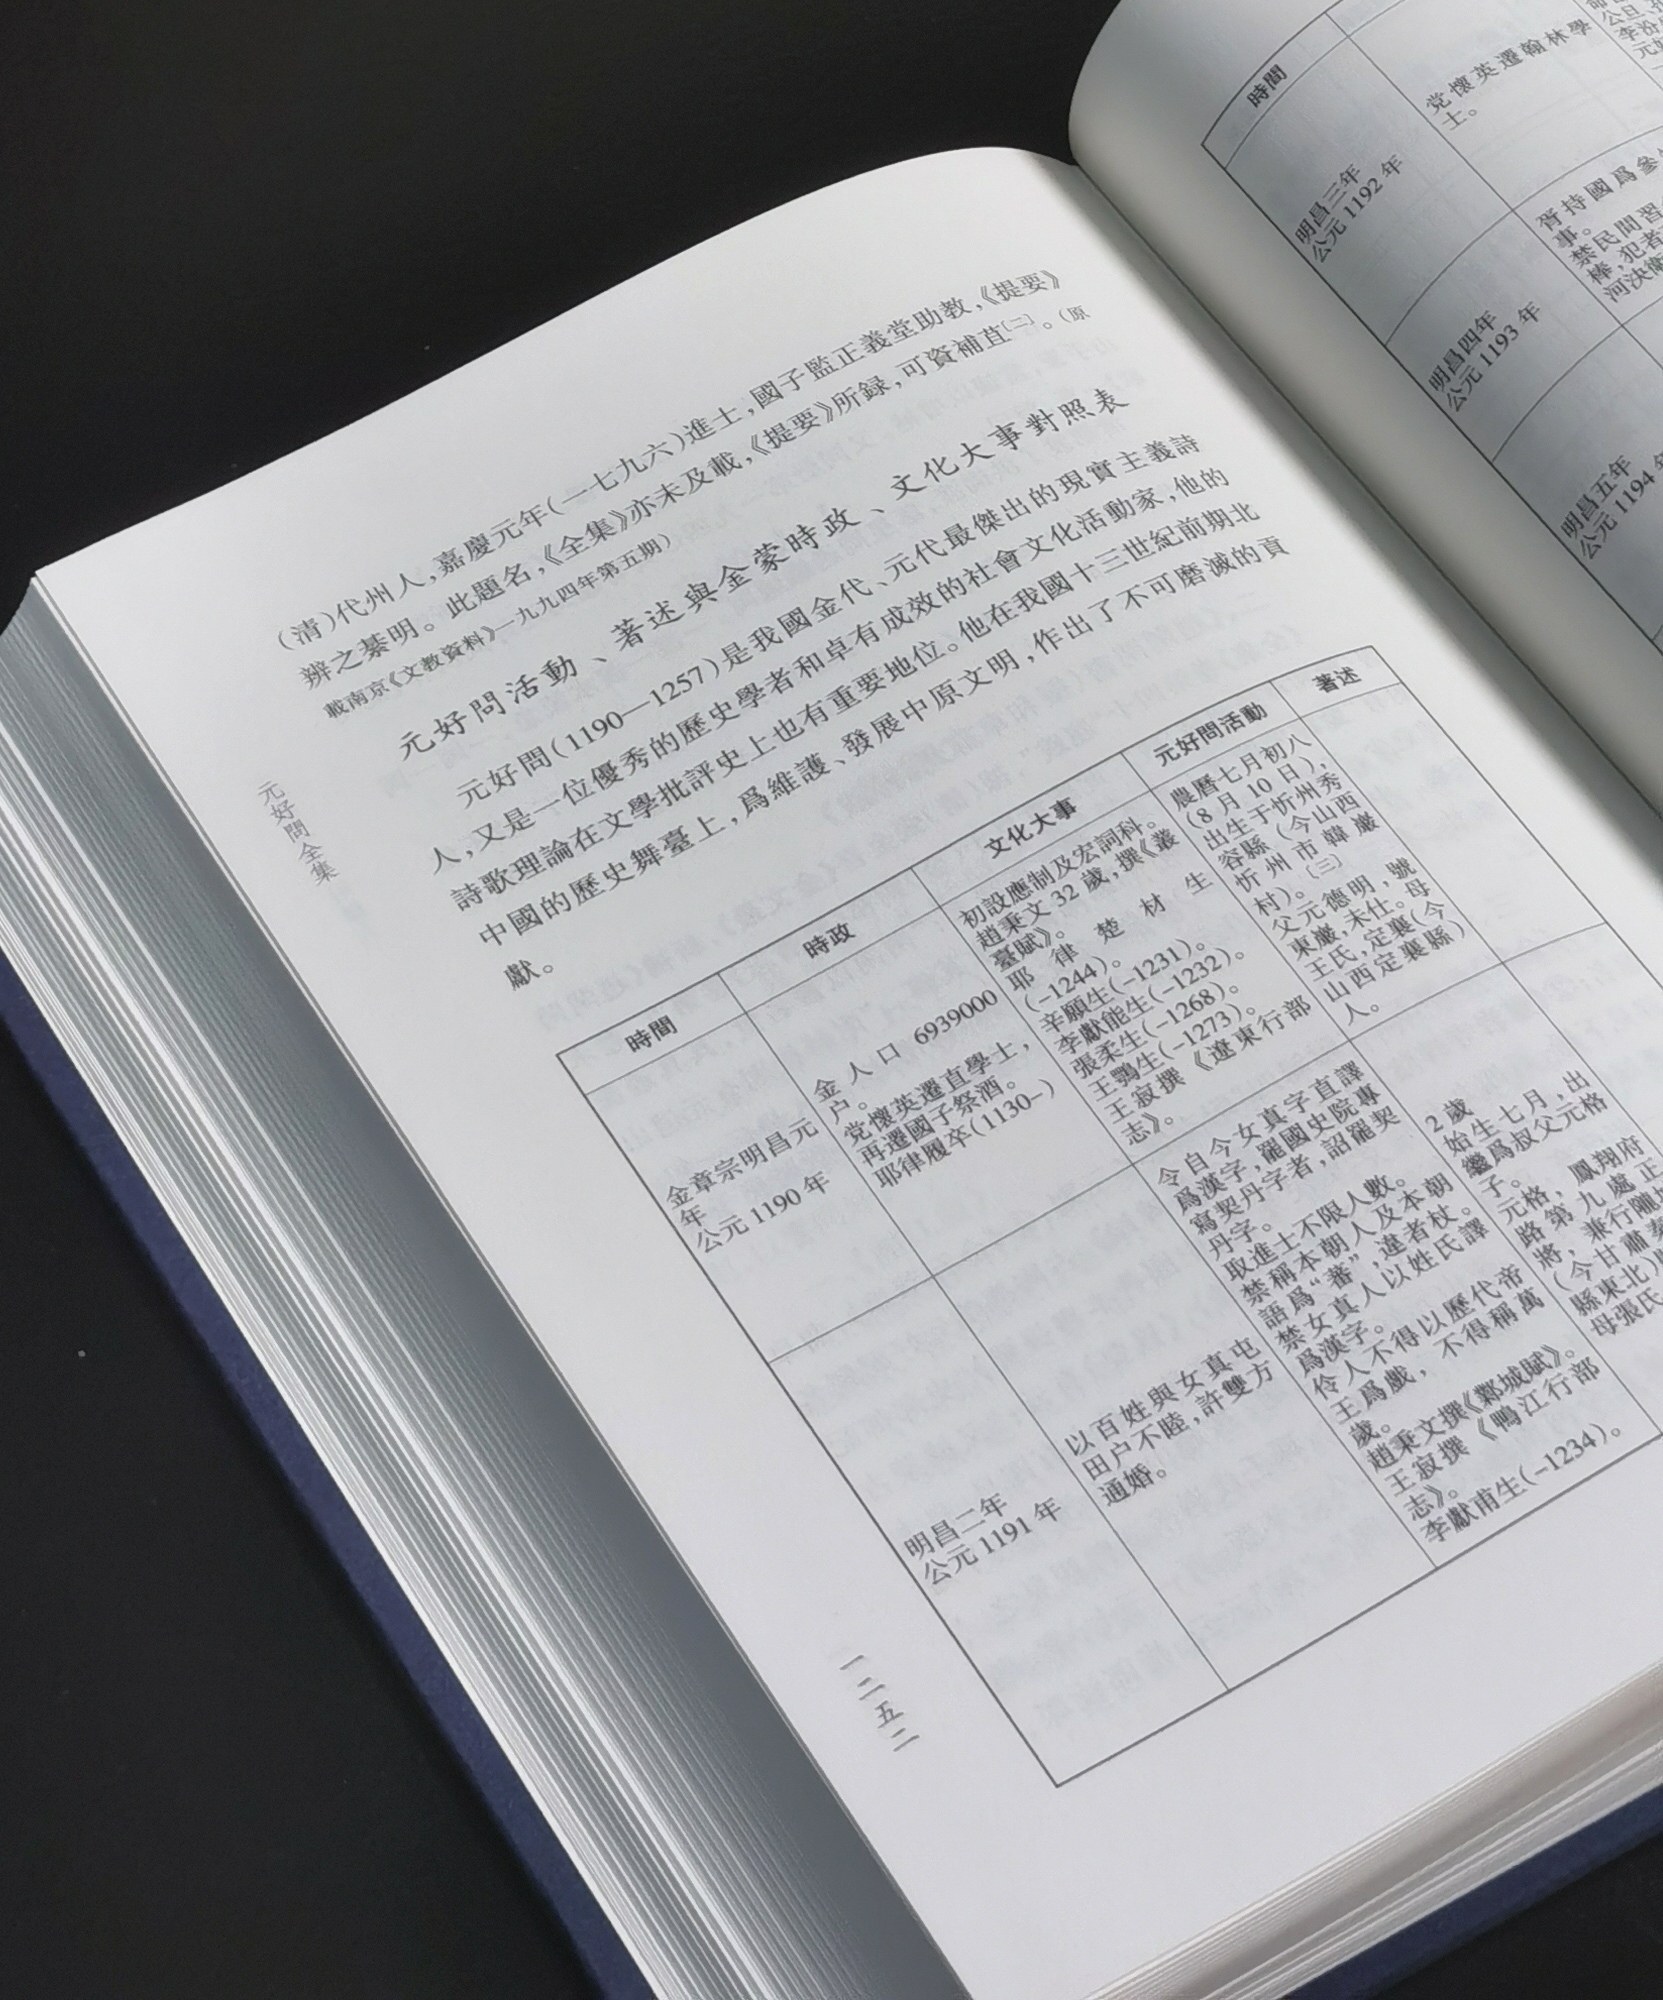 (清)代州人,嘉慶元年(一七九六)進士,國子監正義堂助教,《提要》
辨之綦明。此題名,《全集》亦未及載,《提要》所録,可資補苴〔二〕。(原
載南京《文教資料》一九九四年第五期)
元好問活動、著述與金蒙時政、文化大事對照表
元好問(1190—1257)是我國金代、元代最傑出的現實主義詩
人,又是一位優秀的歷史學者和卓有成效的社會文化活動家,他的
詩歌理論在文學批評史上也有重要地位。他在我國十三世紀前期北
中國的歷史舞臺上,爲維護、發展中原文明,作出了不可磨滅的貢
獻。
元好問全集
時間
時政
文化大事
元好問活動
著述
金章宗明昌元
年
公元 1190 年
金人口 6939000
户。
党懷英遷直學士,
再遷國子祭酒。
耶律履卒(1130-)
初設應制及宏詞科。
趙秉文 32 歲,撰《叢
臺賦》。
耶律楚材生
(-1244)。
辛願生(-1231)。
李獻能生(-1232)。
張柔生(-1268)。
王鶚生(-1273)。
王寂撰《遼東行部
志》。
農曆七月初八
(8 月 10 日),
出生于忻州秀
容縣(今山西
忻州市韓巖
村)。〔三〕
父元德明,號
東巖,未仕。母
王氏,定襄(今
山西定襄縣)
人。
明昌二年
公元 1191 年
以百姓與女真屯
田户不睦,許雙方
通婚。
令自今女真字直譯
爲漢字,罷國史院專
寫契丹字者,詔罷契
丹字。
取進士不限人數。
禁稱本朝人及本朝
語爲“蕃”,違者杖。
禁女真人以姓氏譯
爲漢字。
伶人不得以歷代帝
王爲戲,不得稱萬
歲。
趙秉文撰《鄴城賦》。
王寂撰《鴨江行部
志》。
李獻甫生(-1234)。
2 歲
始生七月,出
繼爲叔父元格
子。
元格,鳳翔府
路第九處正
將,兼行隴
(今甘肅
縣東北)
母張氏
一二五二
時間
党懷英遷翰林學
士。
明昌三年
公元 1192 年
胥持國爲參
事。
禁民間習
棒,犯者
河決衛
明昌四年
公元 1193 年
明昌五年
公元 1194 年